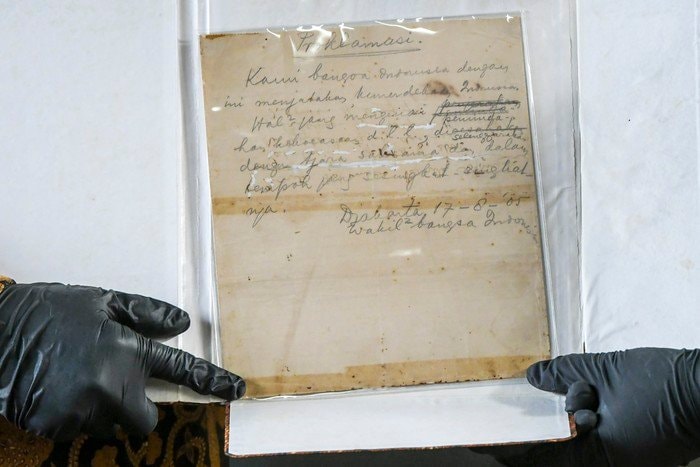 Proklamasi.
Kami bangsa Indonesia dengan
ini menjatakan kemerdekaan Indonesia.
Hal² jang mengenai
peminda-
han kekoeasaan d.l.l., diselenggarakan
dengan tjara seksama dan dalam
tempoh jang sesingkat-singkat
nja.
Djakarta 17-8-'05
Wakil² bangsa Indonesia